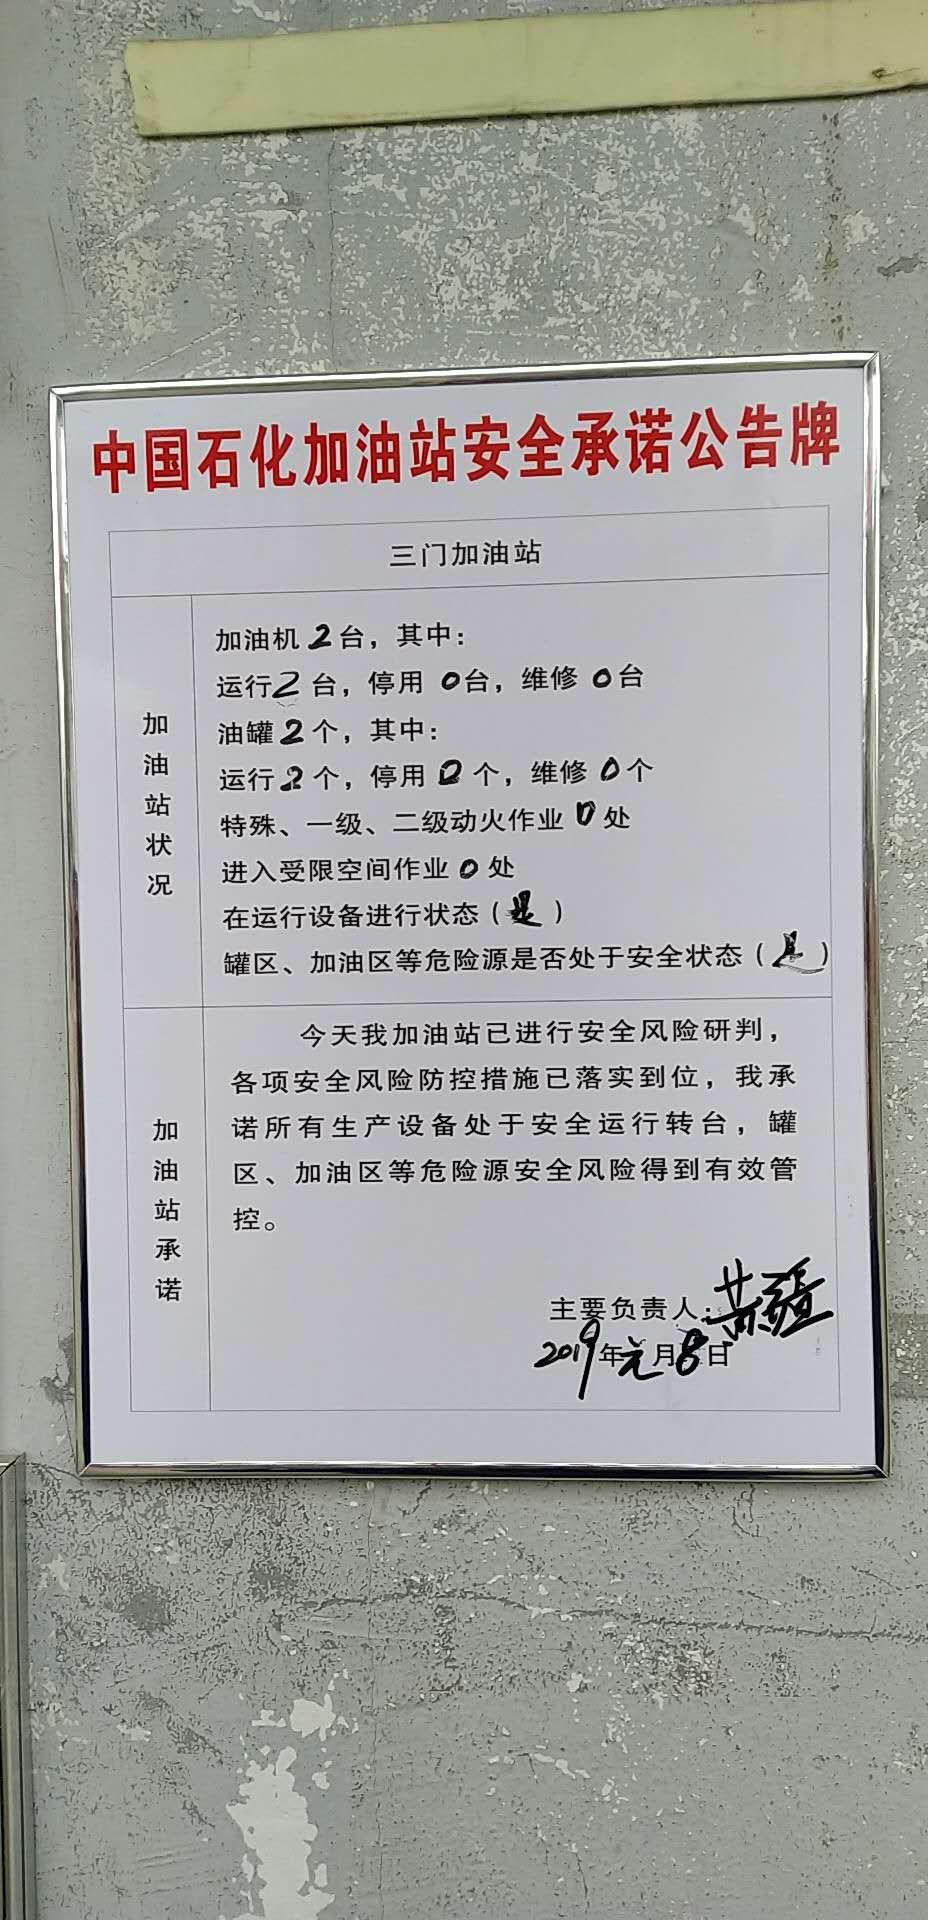 中国石化加油站安全承诺公告牌
三门加油站
加油站状况
加油机2台，其中：
运行2台，停用0台，维修0台
油罐2个，其中：
运行2个，停用0个，维修0个
特殊、一级、二级动火作业0处
进入受限空间作业0处
在运行设备进行状态（是）
罐区、加油区等危险源是否处于安全状态（是）
加油站承诺
今天我加油站已进行安全风险研判，
各项安全风险防控措施已落实到位，我承
诺所有生产设备处于安全运行转台，罐
区、加油区等危险源安全风险得到有效管
控。
主要负责人：
2019年元月8日